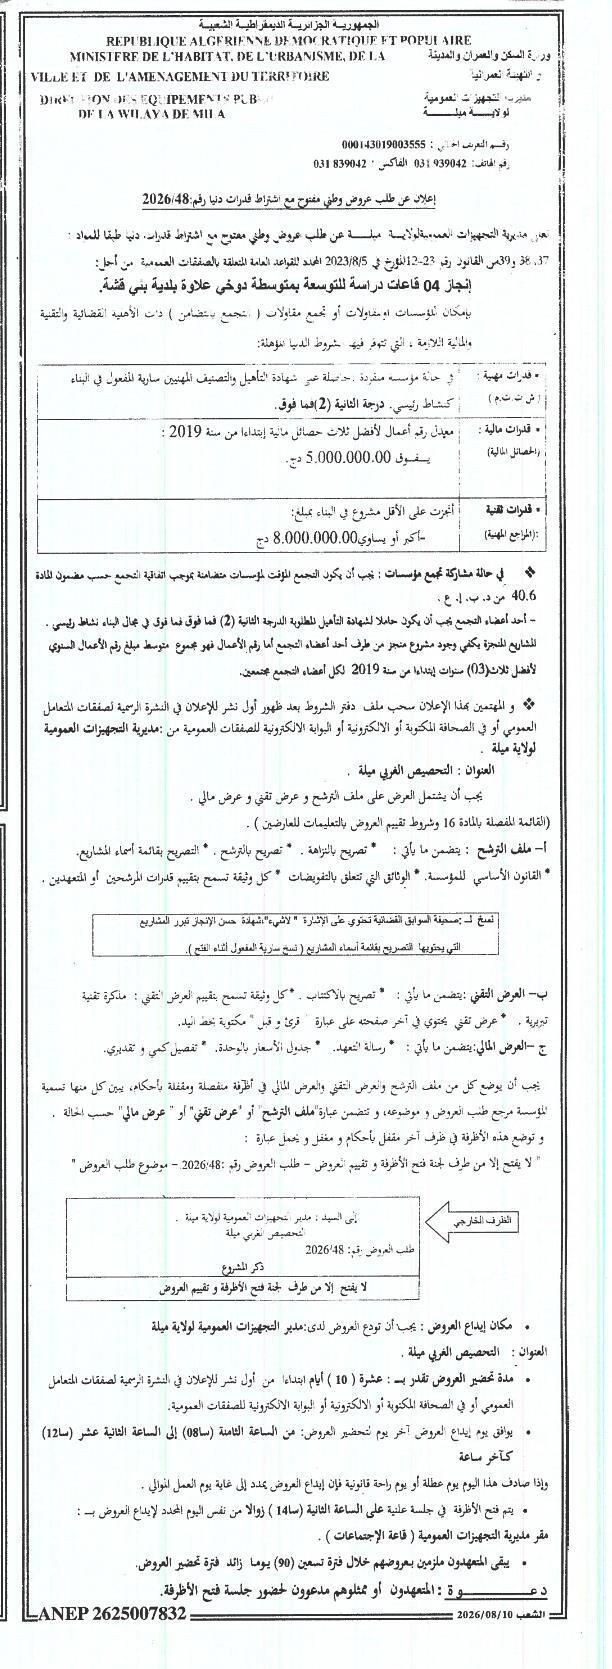 الجمهورية الجزائرية الديمقراطية الشعبية
REPUBLIQUE ALGERIENNE DEMOCRATIQUE ET POPULAIRE
MINISTERE DE L'HABITAT, DE L'URBANISME, DE LA
وزارة السكن والعمران والمدينة
VILLE ET DE L'AMENAGEMENT DU TERRITOIRE
و التهيئة العمرانية
DIRECTION DES EQUIPEMENTS PUB
مديرية التجهيزات العمومية
DE LA WILAYA DE MILA
لولاية ميلة
رقم التعريف الجبائي : 000143019003555
رقم الهاتف: 031 939042 الفاكس : 031 839042
إعلان عن طلب عروض وطني مفتوح مع اشتراط قدرات دنيا رقم:2026/48
تعلن مديرية التجهيزات العموميةلولاية ميلة عن طلب عروض وطني مفتوح مع اشتراط قدرات دنيا طبقا للمواد :
37، 38 و39من القانون رقم 23-12المؤرخ في 2023/8/5 المحدد للقواعد العامة المتعلقة بالصفقات العمومية من أجل:
إنجاز 04 قاعات دراسة للتوسعة بمتوسطة دوخي علاوة بلدية بني قشة.
بإمكان المؤسسات او مقاولات أو تجمع مقاولات ( التجمع بالتضامن ) ذات الأهلية القضائية والتقنية
والمالية اللازمة ، التي تتوفر فيها شروط الدنيا المؤهلة:
• قدرات مهنية :
( ش ت.ت.م )
في حالة مؤسسة منفردة ،حاصلة على شهادة التأهيل والتصنيف المهنيين سارية المفعول في البناء
كنشاط رئيسي. درجة الثانية (2)فما فوق.
• قدرات مالية :
(الحصائل المالية)
معدل رقم أعمال لأفضل ثلاث حصائل مالية إبتداءا من سنة 2019 :
يـفـوق 5.000.000.00 دج.
• قدرات تقنية
(المراجع المهنية):
أنجزت على الأقل مشروع في البناء بمبلغ:
-أكبر أو يساوي8.000.000.00 دج
❖ في حالة مشاركة تجمع مؤسسات : يجب أن يكون التجمع المؤقت لمؤسسات متضامنة بموجب اتفاقية التجمع حسب مضمون المادة
40.6 من د. ب. إ. ع .
- أحد أعضاء التجمع يجب أن يكون حاملا لشهادة التأهيل المطلوبة الدرجة الثانية (2) فما فوق فما فوق في مجال البناء نشاط رئيسي .
المشاريع المنجزة يكفي وجود مشروع منجز من طرف أحد أعضاء التجمع أما رقم الأعمال فهو مجموع متوسط مبلغ رقم الأعمال السنوي
لأفضل ثلاث(03) سنوات إبتداءا من سنة 2019 لكل أعضاء التجمع مجتمعين.
❖ و المهتمين بهذا الإعلان سحب ملف دفتر الشروط بعد ظهور أول نشر للإعلان في النشرة الرسمية لصفقات المتعامل
العمومي أو في الصحافة المكتوبة أو الالكترونية أو البوابة الالكترونية للصفقات العمومية من :مديرية التجهيزات العمومية
لولاية ميلة .
العنوان : التحصيص الغربي ميلة .
يجب أن يشتمل العرض على ملف الترشح و عرض تقني و عرض مالي .
(القائمة المفصلة بالمادة 16 وشروط تقييم العروض بالتعليمات للعارضين ) .
أ– ملف الترشح : يتضمن ما يأتي : * تصريح بالنزاهة . * تصريح بالترشح . * التصريح بقائمة أسماء المشاريع.
* القانون الأساسي للمؤسسة. * الوثائق التي تتعلق بالتفويضات * كل وثيقة تسمح بتقييم قدرات المرشحين أو المتعهدين .
نسخ لـ :صحيفة السوابق القضائية تحتوي على الإشارة " لاشيء"،شهادة حسن الإنجاز تبرر المشاريع
التي يحتويها التصريح بقائمة أسماء المشاريع ( نسخ سارية المفعول أثناء الفتح ).
ب– العرض التقني :يتضمن ما يأتي : * تصريح بالاكتتاب . * كل وثيقة تسمح بتقييم العرض التقني : مذكرة تقنية
تبريرية . * عرض تقني يحتوي في آخر صفحته على عبارة " قرئ و قبل " مكتوبة بخط اليد.
ج –العرض المالي:يتضمن ما يأتي : * رسالة التعهد. * جدول الأسعار بالوحدة. * تفصيل كمي و تقديري.
يجب أن يوضع كل من ملف الترشح والعرض التقني والعرض المالي في أظرفة منفصلة ومقفلة بأحكام، يبين كل منها تسمية
المؤسسة مرجع طلب العروض و موضوعه، و تتضمن عبارة"ملف الترشح" أو "عرض تقني" أو " عرض مالي" حسب الحالة .
و توضع هذه الأظرفة في ظرف آخر مقفل بأحكام و مغفل و يحمل عبارة :
" لا يفتح إلا من طرف لجنة فتح الأظرفة و تقييم العروض – طلب العروض رقم :2026/48 – موضوع طلب العروض "
الظرف الخارجي
إلى السيد : مدير التجهيزات العمومية لولاية ميلة .
التحصيص الغربي ميلة
طلب العروض رقم: 2026/48
ذكر المشروع
لا يفتح إلا من طرف لجنة فتح الأظرفة و تقييم العروض
• مكان إيداع العروض : يجب أن تودع العروض لدى:مدير التجهيزات العمومية لولاية ميلة
العنوان : التحصيص الغربي ميلة .
• مدة تحضير العروض تقدر بـ : عشرة ( 10 ) أيام ابتداءا من أول نشر للإعلان في النشرة الرسمية لصفقات المتعامل
العمومي أو في الصحافة المكتوبة أو الالكترونية أو البوابة الالكترونية للصفقات العمومية.
• يوافق يوم إيداع العروض آخر يوم لتحضير العروض: من الساعة الثامنة (سا08) إلى الساعة الثانية عشر (سا12)
كـآخر ساعة
وإذا صادف هذا اليوم يوم عطلة أو يوم راحة قانونية فإن إيداع العروض يمدد إلى غاية يوم العمل الموالي .
• يتم فتح الأظرفة في جلسة علنية على الساعة الثانية (سا14 ) زوالا من نفس اليوم المحدد لإيداع العروض بــ :
مقر مديرية التجهيزات العمومية ( قاعة الإجتماعات ) .
• يبقى المتعهدون ملزمين بعروضهم خلال فترة تسعين (90) يوما زائد فترة تحضير العروض.
دعــــــوة : المتعهدون أو ممثلوهم مدعوون لحضور جلسة فتح الأظرفة.
الشعب 2026/08/10
ANEP 2625007832